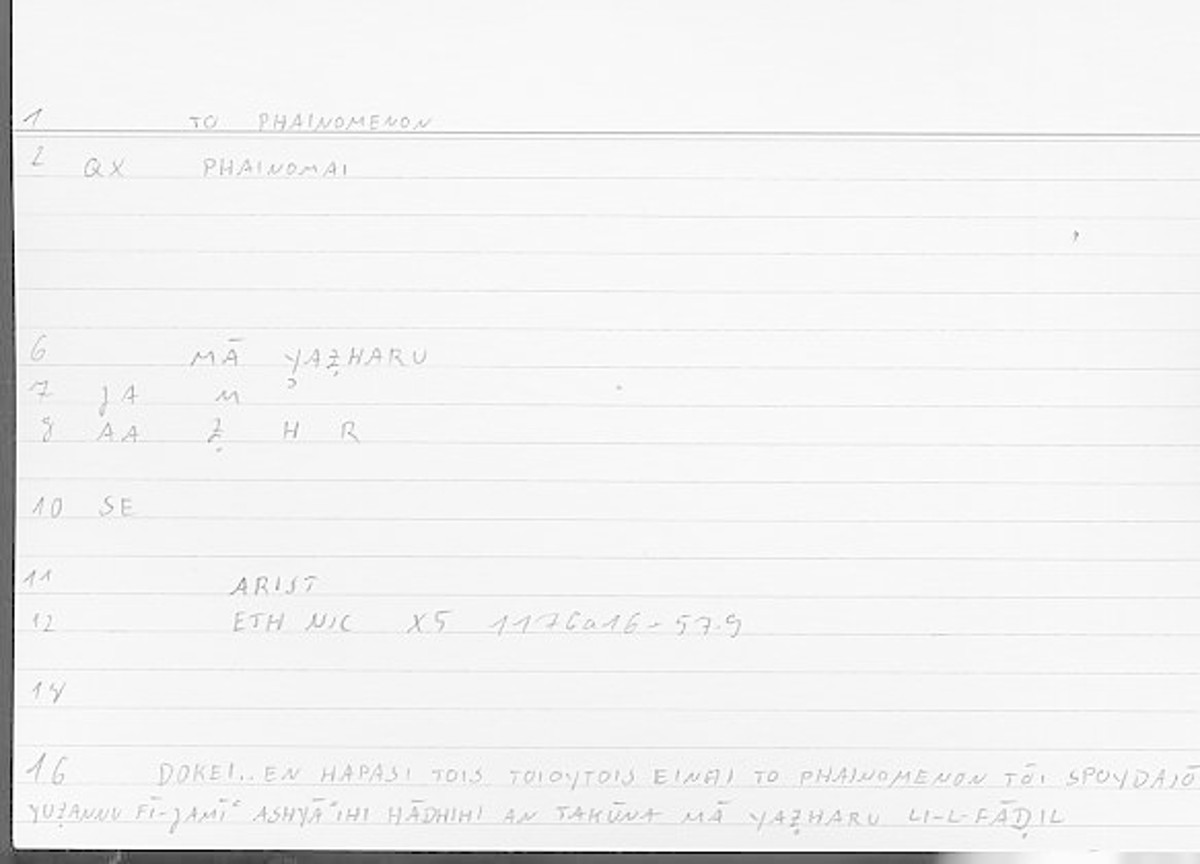 1 TO PHAINOMENON
2 QX PHAINOMAI
6 MĀ YAẒHARU
7 JA M
8 AA Ẓ H R
10 SE
11 ARIST
12 ETH NIC X5 1176a16-57.9
14
16 DOKEI.. EN HAPASI TOIS TOIOYTOIS EINAI TO PHAINOMENON TŌI SPOYDAIŌ
YUẒANNU FĪ-JAMĪʿ ASHYĀʾIHI HĀDHIHI AN TAKŪNA MĀ YAẒHARU LI-L-FĀḌIL